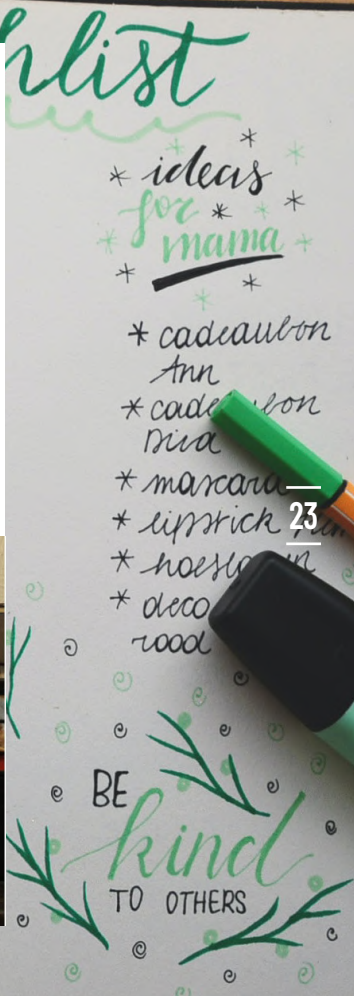 hlist
ideas
for
mama
* cadeaubon
Ann
* cadeaubon
* mascara
* lipstick
23
* deco
rood
BE
kind
TO OTHERS